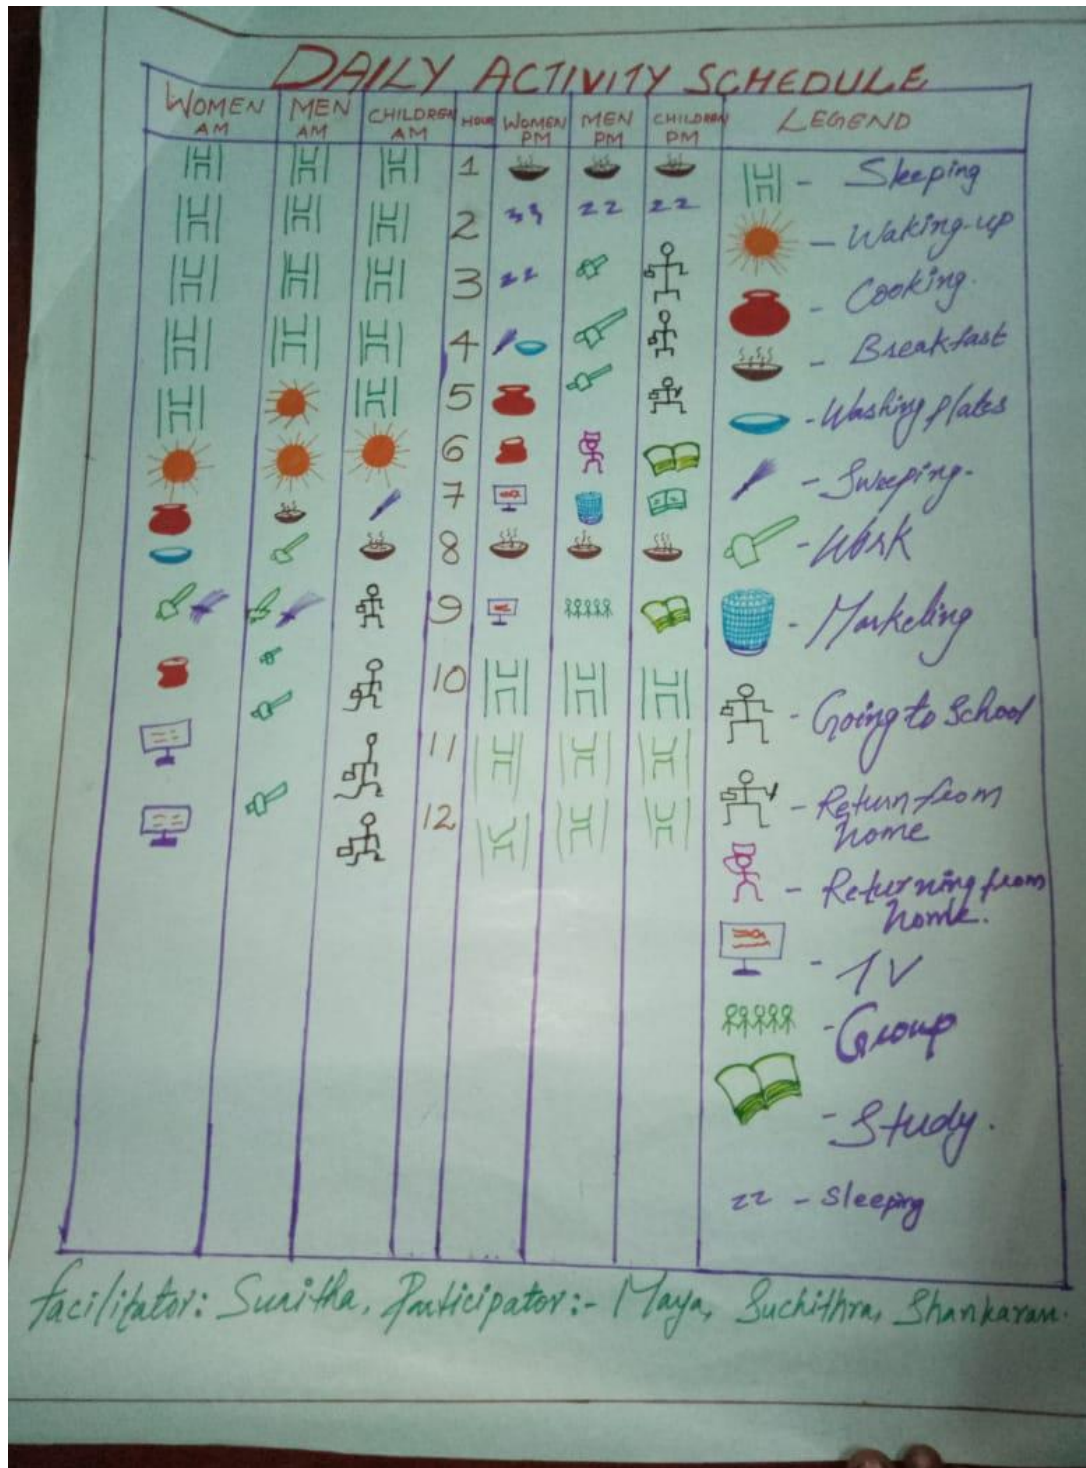 DAILY ACTIVITY SCHEDULE
WOMEN AM MEN AM CHILDREN AM HOUR WOMEN PM MEN PM CHILDREN PM LEGEND
1
2 33 zz zz
3 zz
4
5
6
7
8
9
10
11
12
- Sleeping
- Waking-up
- Cooking.
- Breakfast
- Washing plates
- Sweeping-
- Work
- Marketing
- Going to School
- Return from
home
- Returning from
home.
- TV
- Group
- Study.
zz - Sleeping
facilitator: Sunitha, Participator:- Maya, Suchithra, Shankaran.